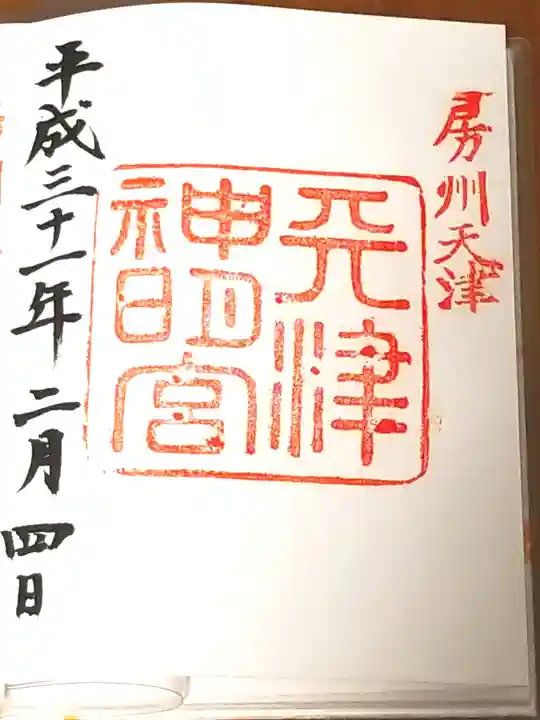 房州天津
天津神明宮
平成三十一年二月四日